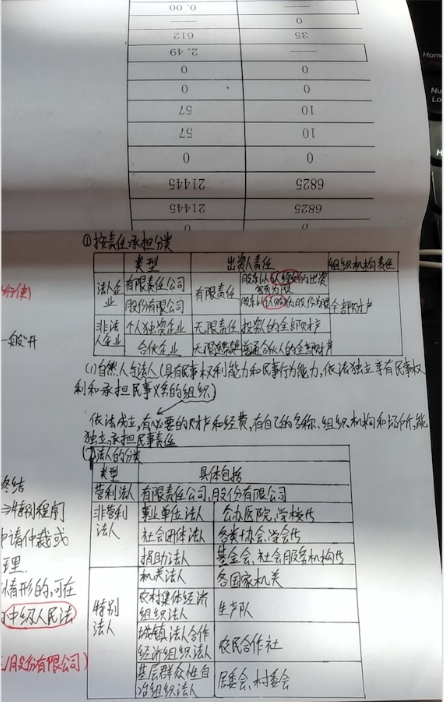 0.00 —
612 35
2.49 —
0 0
0 0
57 10
57 10
0 0
21445 6825
21445 6825
①按责任承担分类
类型 出资人责任 组织机构责任
法人企业 有限责任公司 有限责任 股东以认缴的出资额为限 全部财产
股份有限公司 股东以认购的股份为限
非法人企业 个人独资企业 无限责任 投资人的全部财产
合伙企业 无限 普通合伙人的全部财产
(1)自然人与法人(具有民事权利能力和民事行为能力,依法独立享有民事权
利和承担民事义务的组织)
依法成立,有必要的财产和经费,有自己的名称、组织机构和场所,能
独立承担民事责任
法人的分类
类型 具体包括
营利法人 有限责任公司,股份有限公司
非营利法人 事业单位法人 公办医院,学校等
社会团体法人 各类协会,学会等
捐助法人 基金会,社会服务机构等
特别法人 机关法人 各国家机关
农村集体经济组织法人 生产队
城镇 法合作经济组织法人 农民合作社
基层群众性自治组织法人 居委会,村委会
终结
特别程序
申请仲裁或
理
情形的,可在
中级人民法
股份有限公司)